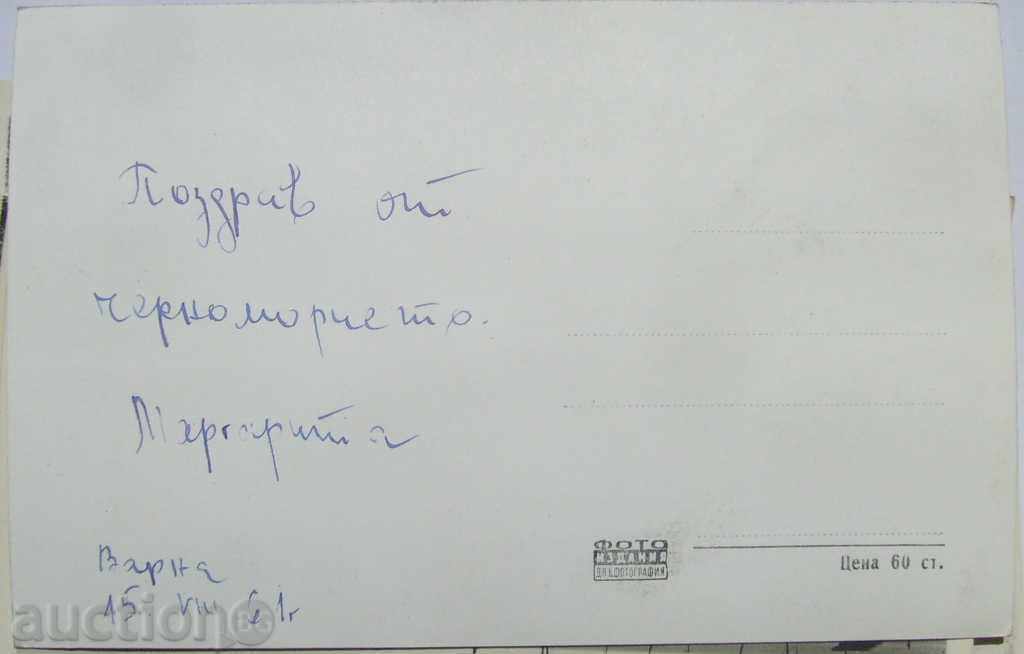 Поздрав от
черноморието.
Маргарита
Варна
15. VIII 61г
ФОТО
ИЗДАНИЯ
ДП БФОТОГРАФИЯ
Цена 60 ст.
auction BG